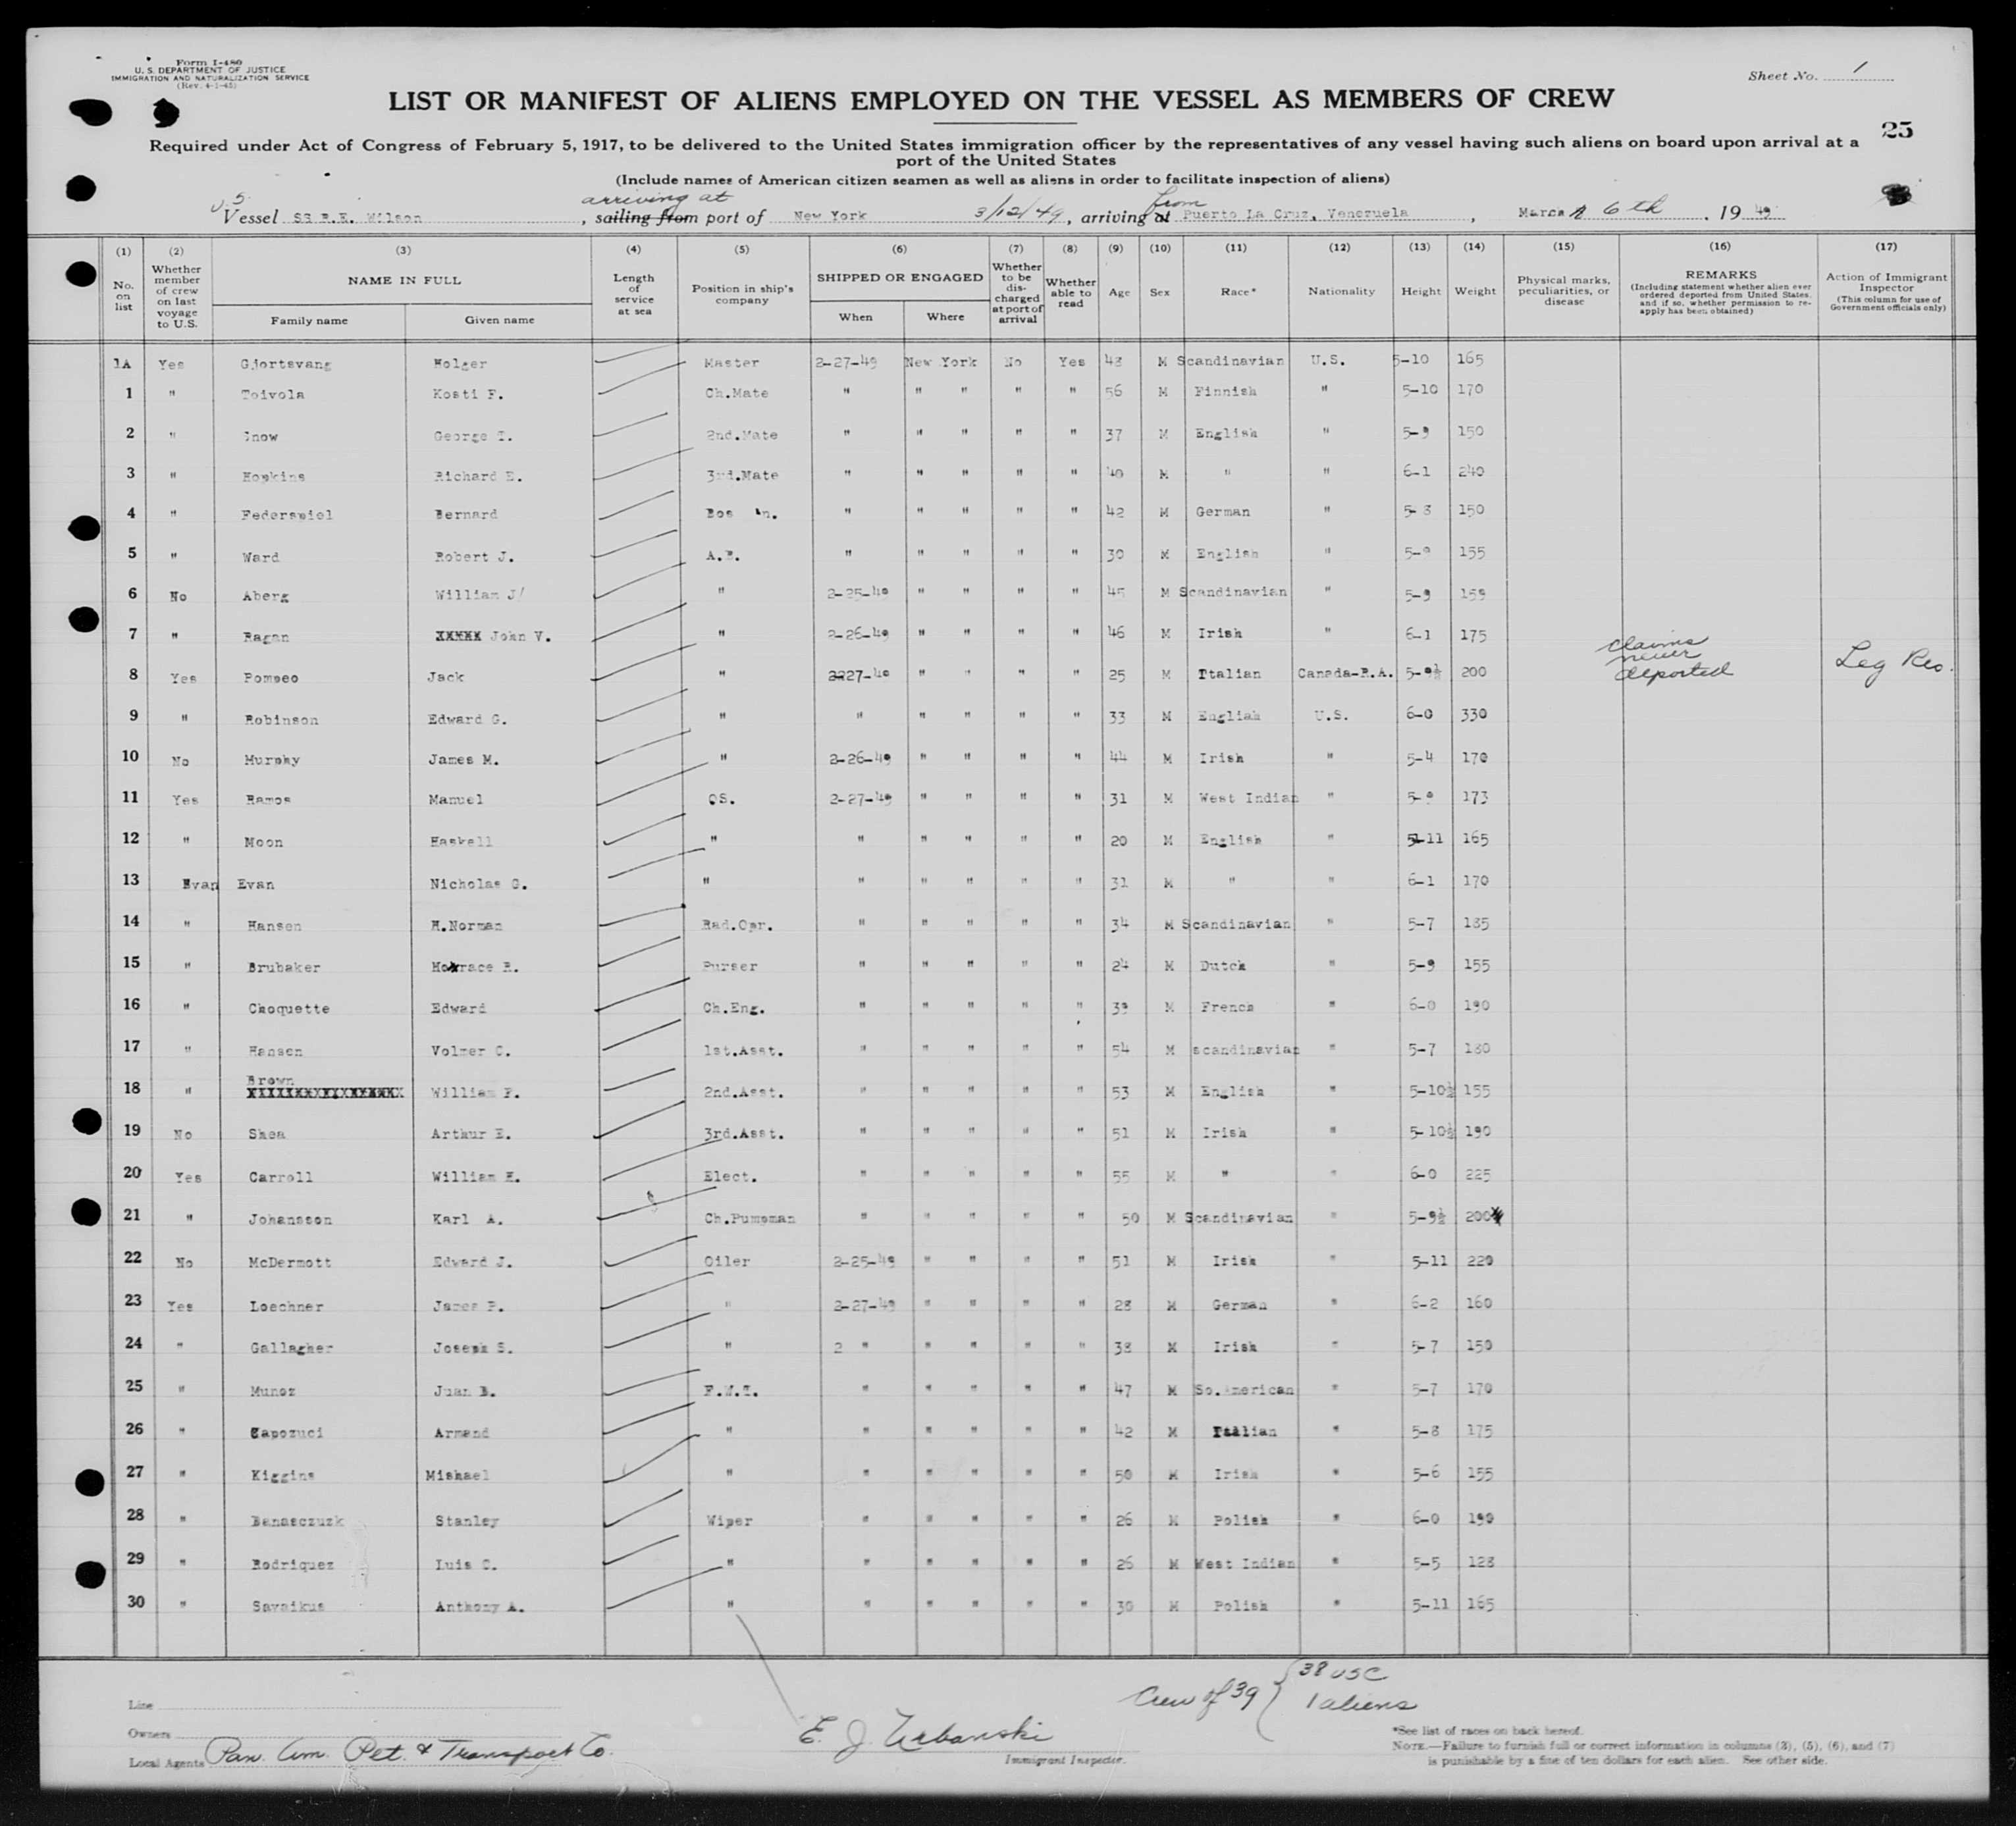 Form I-480
U. S. DEPARTMENT OF JUSTICE
IMMIGRATION AND NATURALIZATION SERVICE
(Rev. 4-1-45)
Sheet No. 1
LIST OR MANIFEST OF ALIENS EMPLOYED ON THE VESSEL AS MEMBERS OF CREW
25
Required under Act of Congress of February 5, 1917, to be delivered to the United States immigration officer by the representatives of any vessel having such aliens on board upon arrival at a
port of the United States
(Include names of American citizen seamen as well as aliens in order to facilitate inspection of aliens)
arriving at from
U.S. Vessel SS R.E. Wilson, sailing from port of New York 3/12/49, arriving at Puerto La Cruz, Venezuela, March 6th, 19 49
(1) (2) (3) (4) (5) (6) (7) (8) (9) (10) (11) (12) (13) (14) (15) (16) (17)
No. on list
Whether member of crew on last voyage to U.S.
NAME IN FULL
Family name Given name
Length of service at sea
Position in ship's company
SHIPPED OR ENGAGED
When Where
Whether to be discharged at port of arrival
Whether able to read
Age
Sex
Race*
Nationality
Height
Weight
Physical marks, peculiarities, or disease
REMARKS
(Including statement whether alien ever ordered deported from United States, and if so, whether permission to re-apply has been obtained)
Action of Immigrant Inspector
(This column for use of Government officials only)
1A Yes Gjortsvang Holger Master 2-27-49 New York No Yes 48 M Scandinavian U.S. 5-10 165
1 " Toivola Kosti F. Ch.Mate " " " " " 56 M Finnish " 5-10 170
2 " Snow George T. 2nd.Mate " " " " " 37 M English " 5-9 150
3 " Hopkins Richard E. 3rd.Mate " " " " " 40 M " " 6-1 240
4 " Federswiel Bernard Bos'n. " " " " " 42 M German " 5-8 150
5 " Ward Robert J. A.B. " " " " " 30 M English " 5-9 155
6 No Aberg William J/ " 2-25-49 " " " " 45 M Scandinavian " 5-9 159
7 " Ragan XXXXX John V. " 2-26-49 " " " " 46 M Irish " 6-1 175
8 Yes Pompeo Jack " 2227-49 " " " " 25 M Italian Canada-R.A. 5-9½ 200 claims never deported Leg Res.
9 " Robinson Edward G. " " " " " " 33 M English U.S. 6-0 330
10 No Murphy James M. " 2-26-49 " " " " 44 M Irish " 5-4 170
11 Yes Ramos Manuel OS. 2-27-49 " " " " 31 M West Indian " 5-9 173
12 " Moon Haskell " " " " " " 20 M English " 5-11 165
13 Evan Evan Nicholas G. " " " " " " 31 M " " 6-1 170
14 " Hansen H.Norman Rad.Opr. " " " " " 34 M Scandinavian " 5-7 185
15 " Brubaker Horace R. Purser " " " " " 24 M Dutch " 5-9 155
16 " Choquette Edward Ch.Eng. " " " " " 39 M French " 6-0 190
17 " Hansen Volmer C. 1st.Asst. " " " " " 54 M scandinavian " 5-7 180
Brown
18 " XXXXXXXXXXXXXXXXX William F. 2nd.Asst. " " " " " 53 M English " 5-10½ 155
19 No Shea Arthur E. 3rd.Asst. " " " " " 51 M Irish " 5-10½ 190
20 Yes Carroll William H. Elect. " " " " " 55 M " " 6-0 225
21 " Johansson Karl A. Ch.Pumpman " " " " " 50 M Scandinavian " 5-9½ 200
22 No McDermott Edward J. Oiler 2-25-49 " " " " 51 M Irish " 5-11 220
23 Yes Loechner James P. " 2-27-49 " " " " 28 M German " 6-2 160
24 " Gallagher Joseph S. " 2 " " " " " 38 M Irish " 5-7 150
25 " Munoz Juan B. F.W.T. " " " " " 47 M So.American " 5-7 170
26 " Capozuci Armand " " " " " " 42 M Italian " 5-8 175
27 " Kiggins Mishael " " " " " " 50 M Irish " 5-6 155
28 " Banasczuzk Stanley Wiper " " " " " 26 M Polish " 6-0 190
29 " Rodriquez Luis C. " " " " " " 26 M West Indian " 5-5 128
30 " Savaikus Anthony A. " " " " " " 30 M Polish " 5-11 165
Crew of 39 { 38 USC
1 aliens
Line
Owners
Local Agents Pan. Am. Pet. & Transport Co.
E. J. Urbanski
Immigrant Inspector.
*See list of races on back hereof.
NOTE.—Failure to furnish full or correct information in columns (3), (5), (6), and (7)
is punishable by a fine of ten dollars for each alien. See other side.